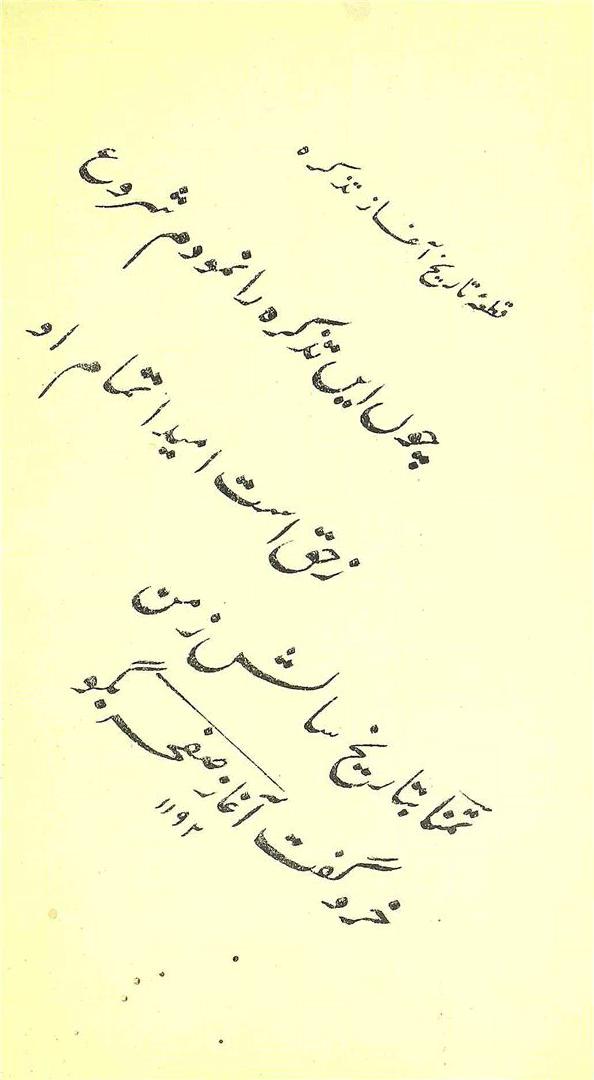 قطعۂ تاریخ آغاز تذکره
چوں ایں تذکره را نمودم شروع
ز حق است امید اتمام او
تمنّا بتاریخ سالش ز من
خرد گفت آغاز صفحه بگو
۱۱۹۲